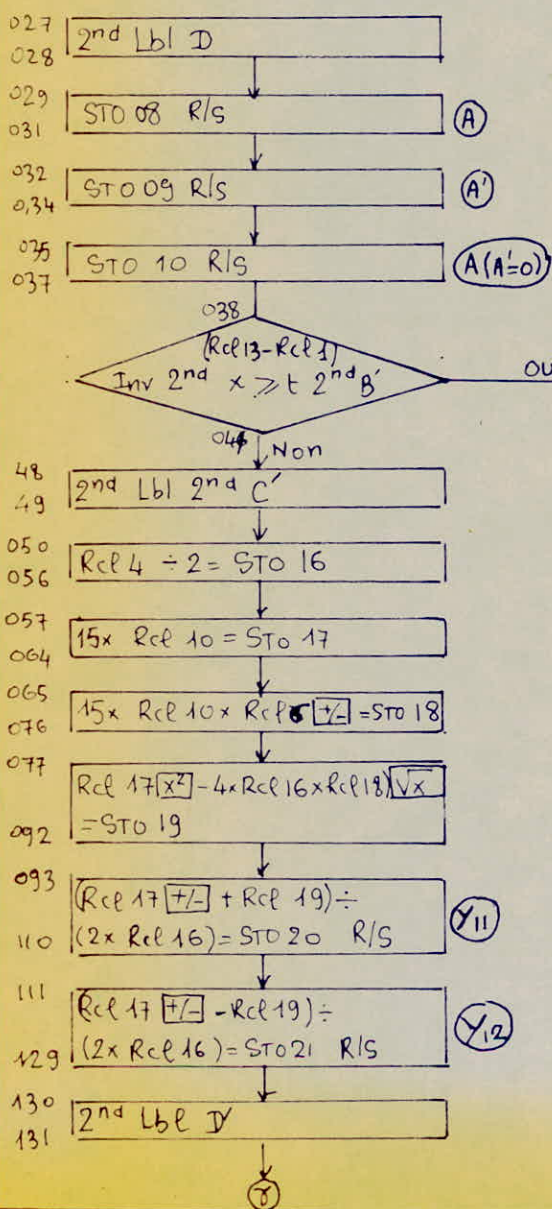 027
028
2nd Lbl D
029
031
STO 08 R/S
A
032
0,34
STO 09 R/S
A'
035
037
STO 10 R/S
A(A'=0)
038
(Rcl 13-Rcl 1)
Inv 2nd x ≥ t 2nd B'
OU
Non
48
49
2nd Lbl 2nd C'
050
056
Rcl 4 ÷ 2 = STO 16
057
064
15x Rcl 10 = STO 17
065
076
15x Rcl 10 x Rcl +/- = STO 18
077
092
Rcl 17 x² - 4 x Rcl 16 x Rcl 18) √x
= STO 19
093
110
(Rcl 17 +/- + Rcl 19) ÷
(2x Rcl 16) = STO 20 R/S
Y11
111
129
(Rcl 17 +/- - Rcl 19) ÷
(2x Rcl 16) = STO 21 R/S
Y12
130
131
2nd Lbl D'
γ